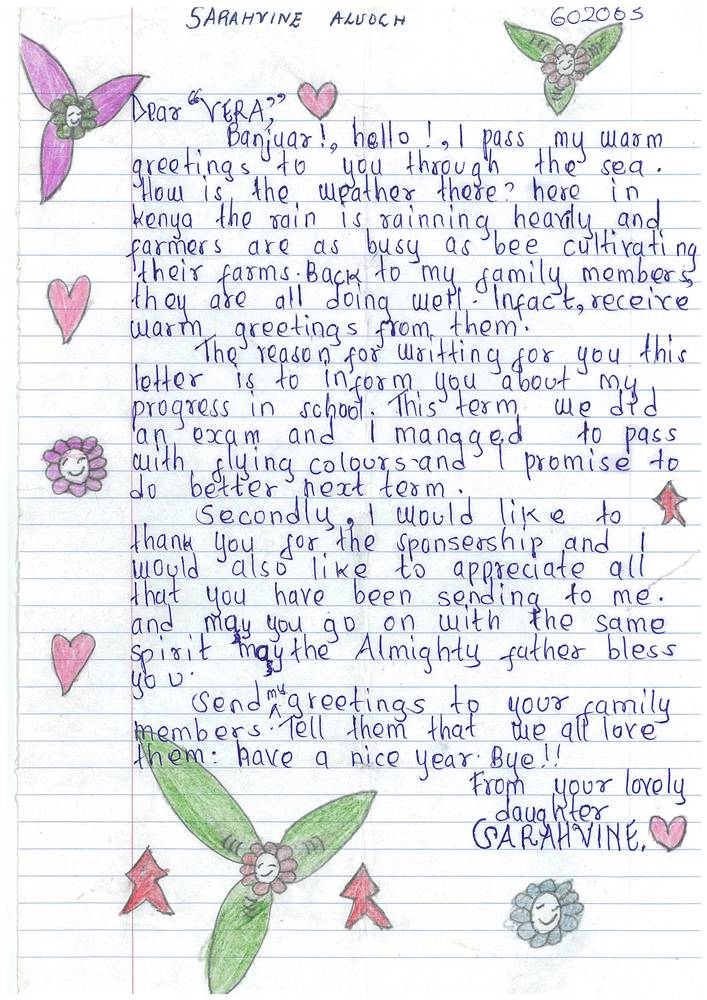 SARAHVINE ALUOCH 602065
Dear "VERA,"
Banjuar!, hello!, I pass my warm
greetings to you through the sea.
How is the weather there? here in
kenya the rain is rainning heavily and
farmers are as busy as bee cultivating
their farms. Back to my family members,
they are all doing well. Infact, receive
warm greetings from them.
The reason for writting for you this
letter is to inform you about my
progress in school. This term we did
an exam and I managed to pass
with flying colours and I promise to
do better next term.
Secondly, I would like to
thank you for the sponsership and I
would also like to appreciate all
that you have been sending to me.
and may you go on with the same
spirit may the Almighty father bless
you.
Send my greetings to your family
members. Tell them that we all love
them: have a nice year. Bye!!
From your lovely
daughter
SARAHVINE.